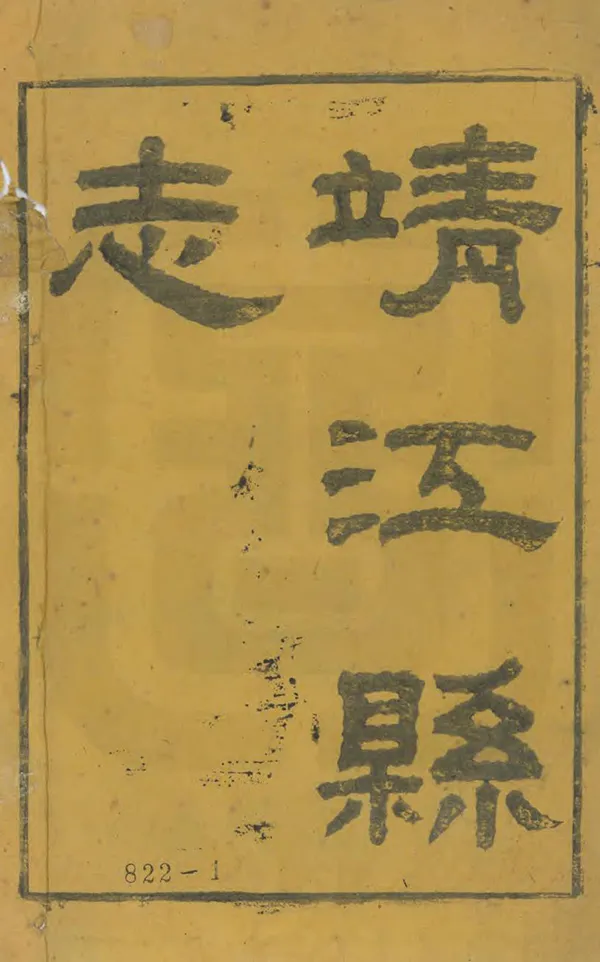 靖江縣
志
822-1